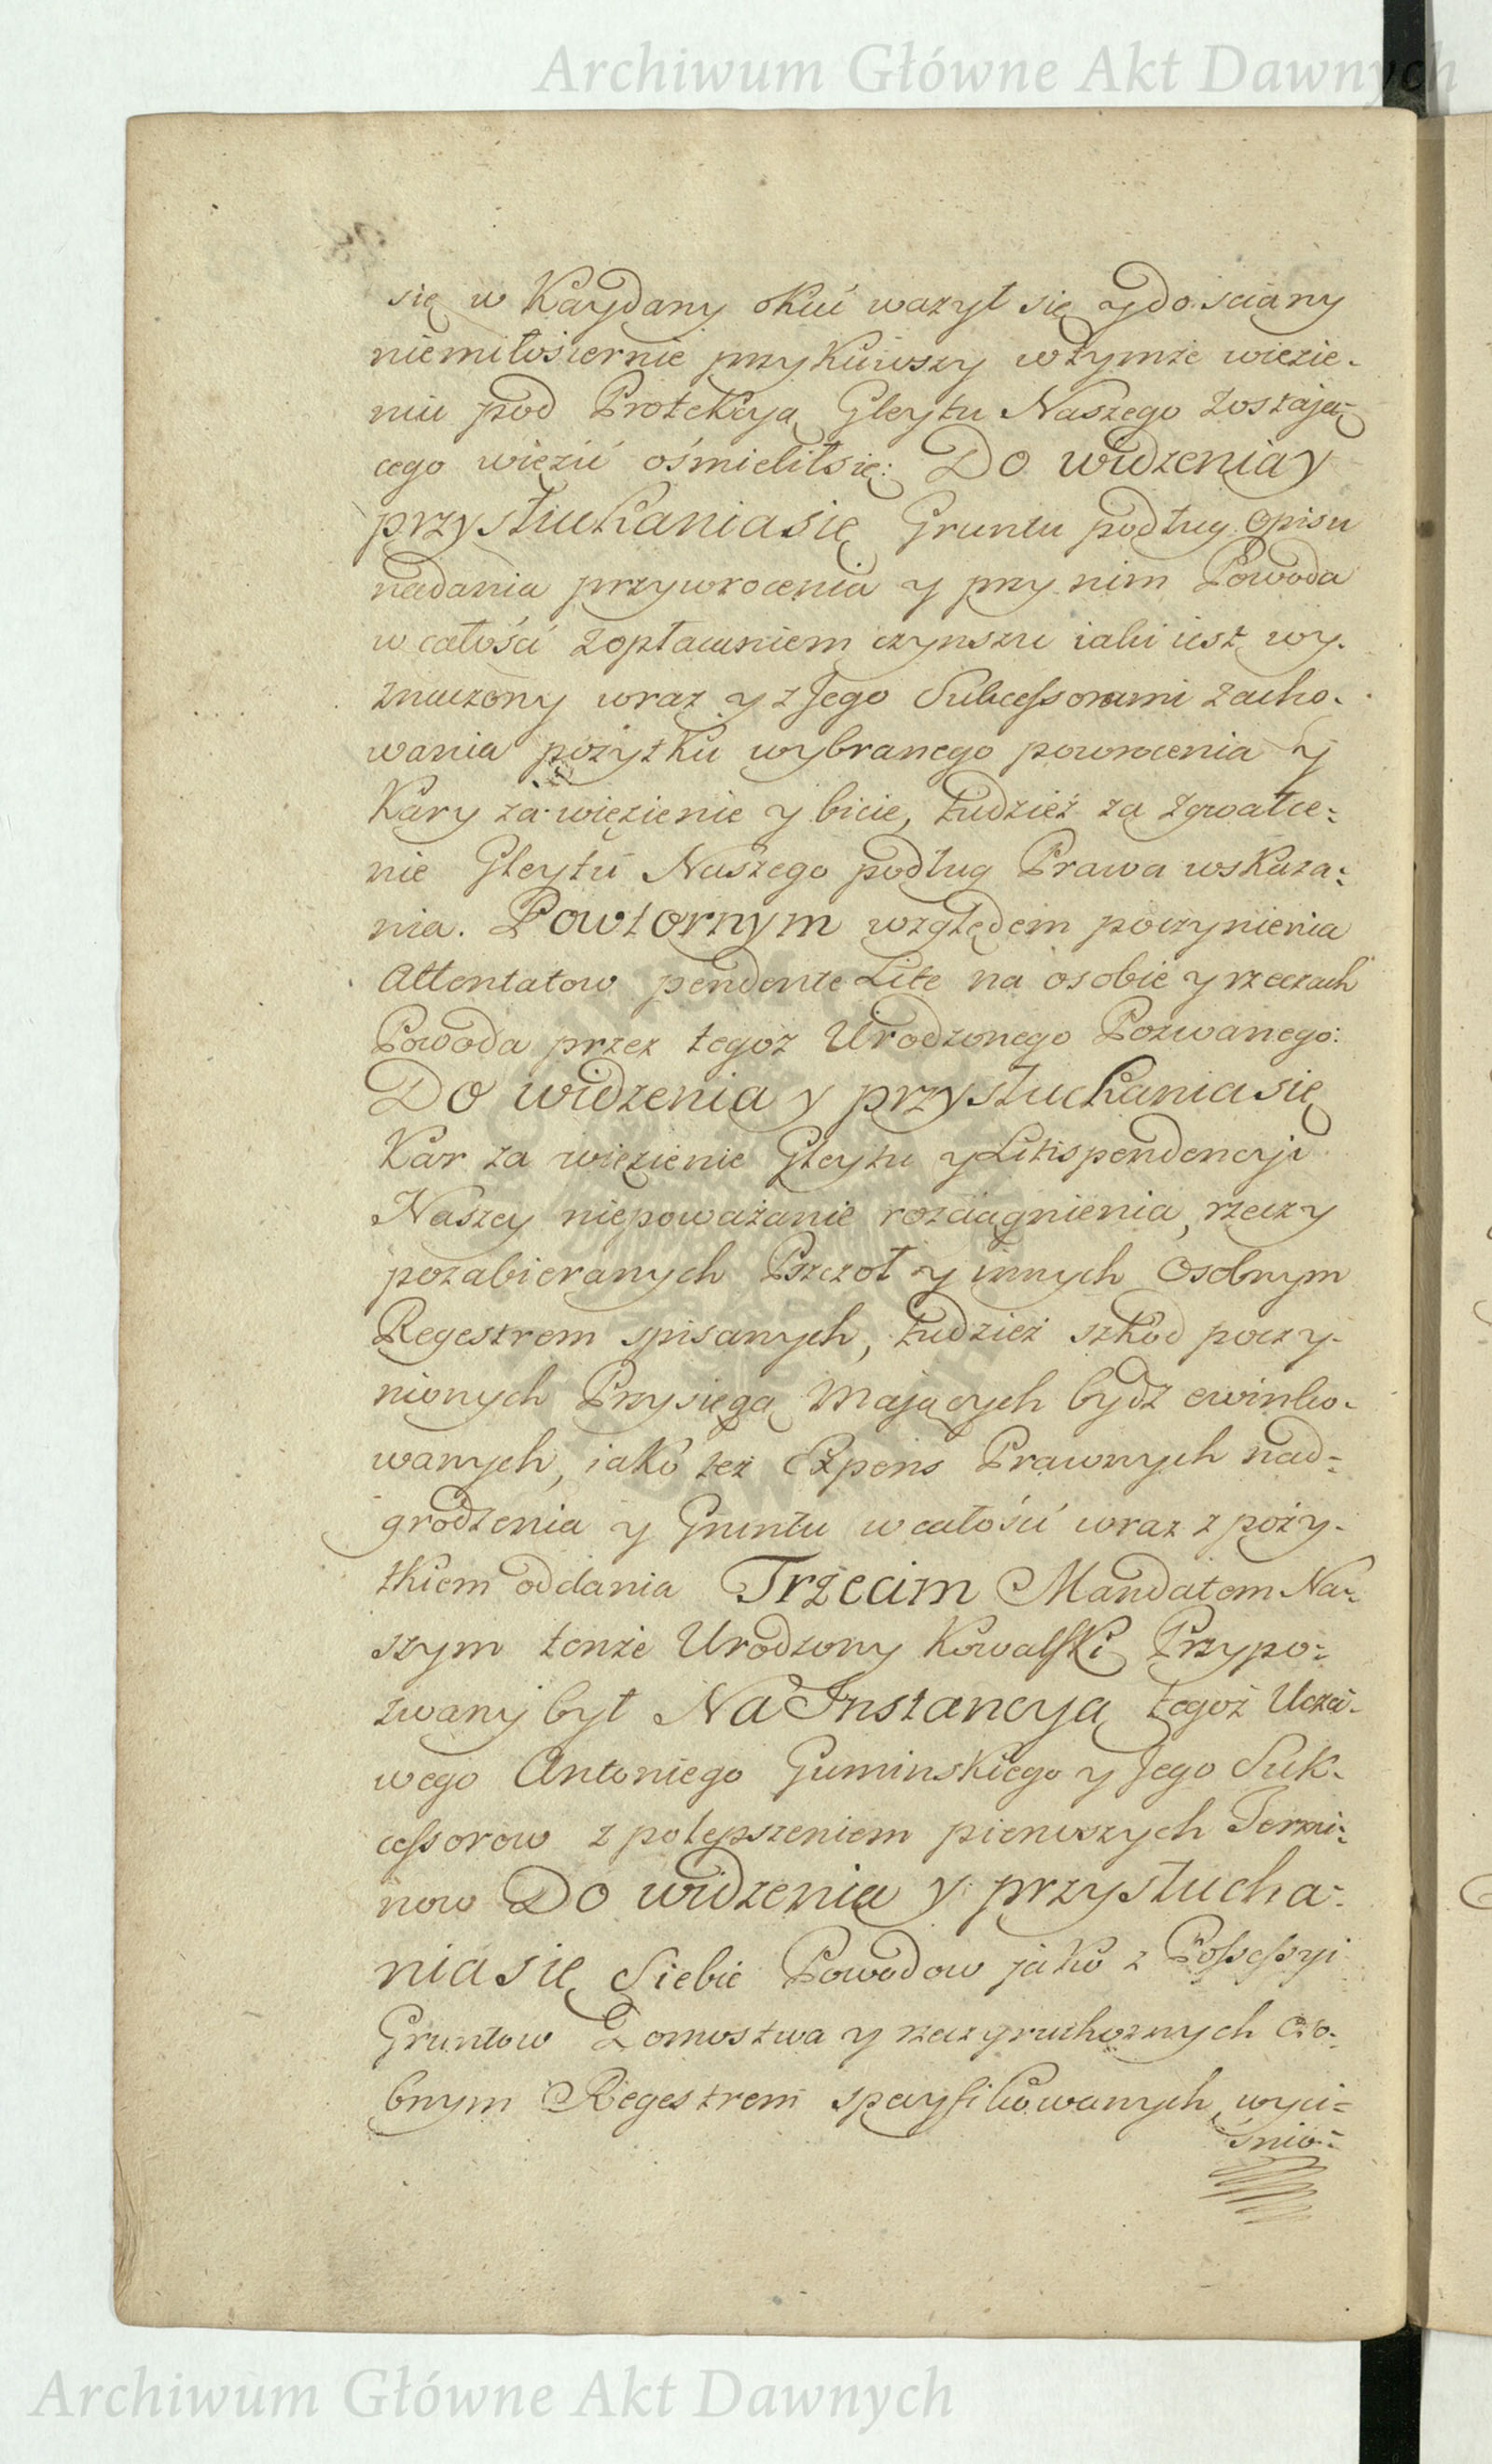 Archiwum Główne Akt Dawnych
się w Kaydany okuć ważył się y do sciany
niemiłosiernie przykuwszy w tymże wiezie-
niu pod Protekcyą Gleytu Naszego zostaią-
cego więzić ośmielił się: Do widzenia y
przysłuchania się Gruntu podług opisu
nadania przywrocenia y przy nim Powoda
w całości z opłaceniem czynszu iaki iest wy-
znaczony wraz y z Jego Sukcessorami zacho-
wania pożytku wybranego powrocenia y
Kary za więzienie y bicie, tudzież za zgwałce-
nie Gleytu Naszego podług Prawa wskaza-
nia. Powtornym względem poczynienia
Attentatow pendente Lite na osobie y rzeczach
Powoda przez tegoż Urodzonego Pozwanego:
Do widzenia y przysłuchania się
Kar za więzienie Gleytu y Litispendencyi
Naszey niepoważanie rozciągnienia, rzeczy
pozabieranych Pszczoł y innych osobnym
Regestrem spisanych, tudzież szkod poczy-
nionych Przysięgą mających bydź ewinko-
wanych, iako też Expens Prawnych nad-
grodzenia y Gruntu w całości wraz z poży-
tkiem oddania Trzecim Mandatem Na-
szym tenże Urodzony Kowalski Przypo-
zwany był Na Instancyą tegoż Uczci-
wego Antoniego Guminskiego y Jego Suk-
cessorow z polepszeniem pierwszych Termi-
now Do widzenia y przysłucha-
nia się Siebie Powodow jako z Possessyi
Gruntow Domostwa y rzeczy ruchomych oso-
bnym Regestrem specyfikowanych, wyci-
śnio-
Archiwum Główne Akt Dawnych